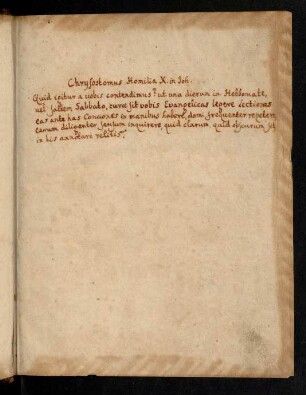 Chrysostomus Homilia X. in Joh.
Quid igitur a vobis contendimus? ut una dierum in Hebdomate,
vel saltem Sabbato, curæ sit vobis Evangelicas legere Lectiones
eas ante has Conciones in manibus habere, domi frequenter repetere
earum diligenter sensum inquirere, quid clarum, quid obscurum sit
in his annotare velitis.